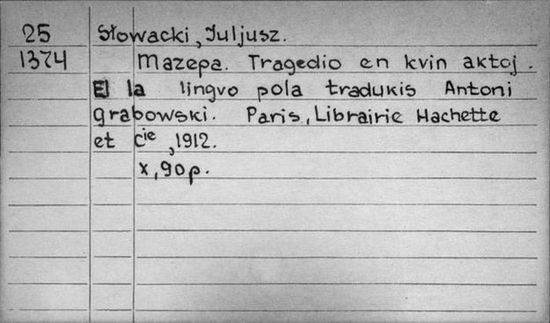 25 Słowacki, Juljusz.
1374 Mazepa. Tragedio en kvin aktoj.
El la lingvo pola tradukis Antoni
Grabowski. Paris, Librairie Hachette
et Cie, 1912.
x, 90p.